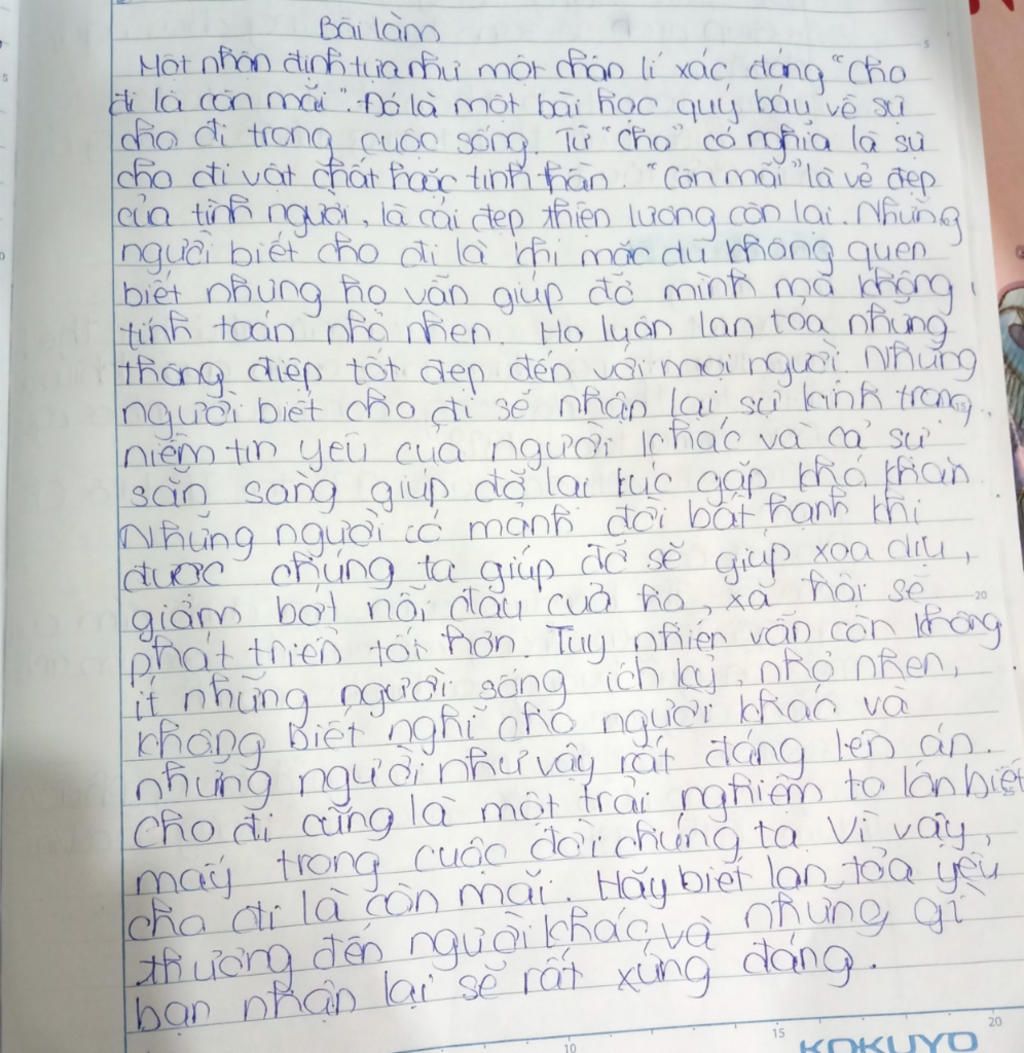 Bài làm
Một nhận định tựa như một chân lí xác đáng "cho
đi là còn mãi". Đó là một bài học quý báu về sự
cho đi trong cuộc sống. Từ "cho" có nghĩa là sự
cho đi vật chất hoặc tinh thần. "Còn mãi" là vẻ đẹp
của tình người, là cái đẹp thiện lương còn lại. Những
người biết cho đi là khi mặc dù không quen
biết nhưng họ vẫn giúp đỡ mình mà không
tính toán nhỏ nhen. Họ luôn lan tỏa những
thông điệp tốt đẹp đến với mọi người. Những
người biết cho đi sẽ nhận lại sự kính trọng,
niềm tin yêu của người khác và cả sự
sẵn sàng giúp đỡ lại lúc gặp khó khăn
Những người có mảnh đời bất hạnh khi
được chúng ta giúp đỡ sẽ giúp xoa dịu,
giảm bớt nỗi đau của họ, xã hội sẽ
phát triển tốt hơn. Tuy nhiên vẫn còn không
ít những người sống ích kỷ, nhỏ nhen,
không biết nghĩ cho người khác và
những người như vậy rất đáng lên án.
Cho đi cũng là một trải nghiệm to lớn biết
mấy trong cuộc đời chúng ta. Vì vậy,
cho đi là còn mãi. Hãy biết lan tỏa yêu
thương đến người khác và những gì
bạn nhận lại sẽ rất xứng đáng.
5
20
10
15
20
KOKUYO